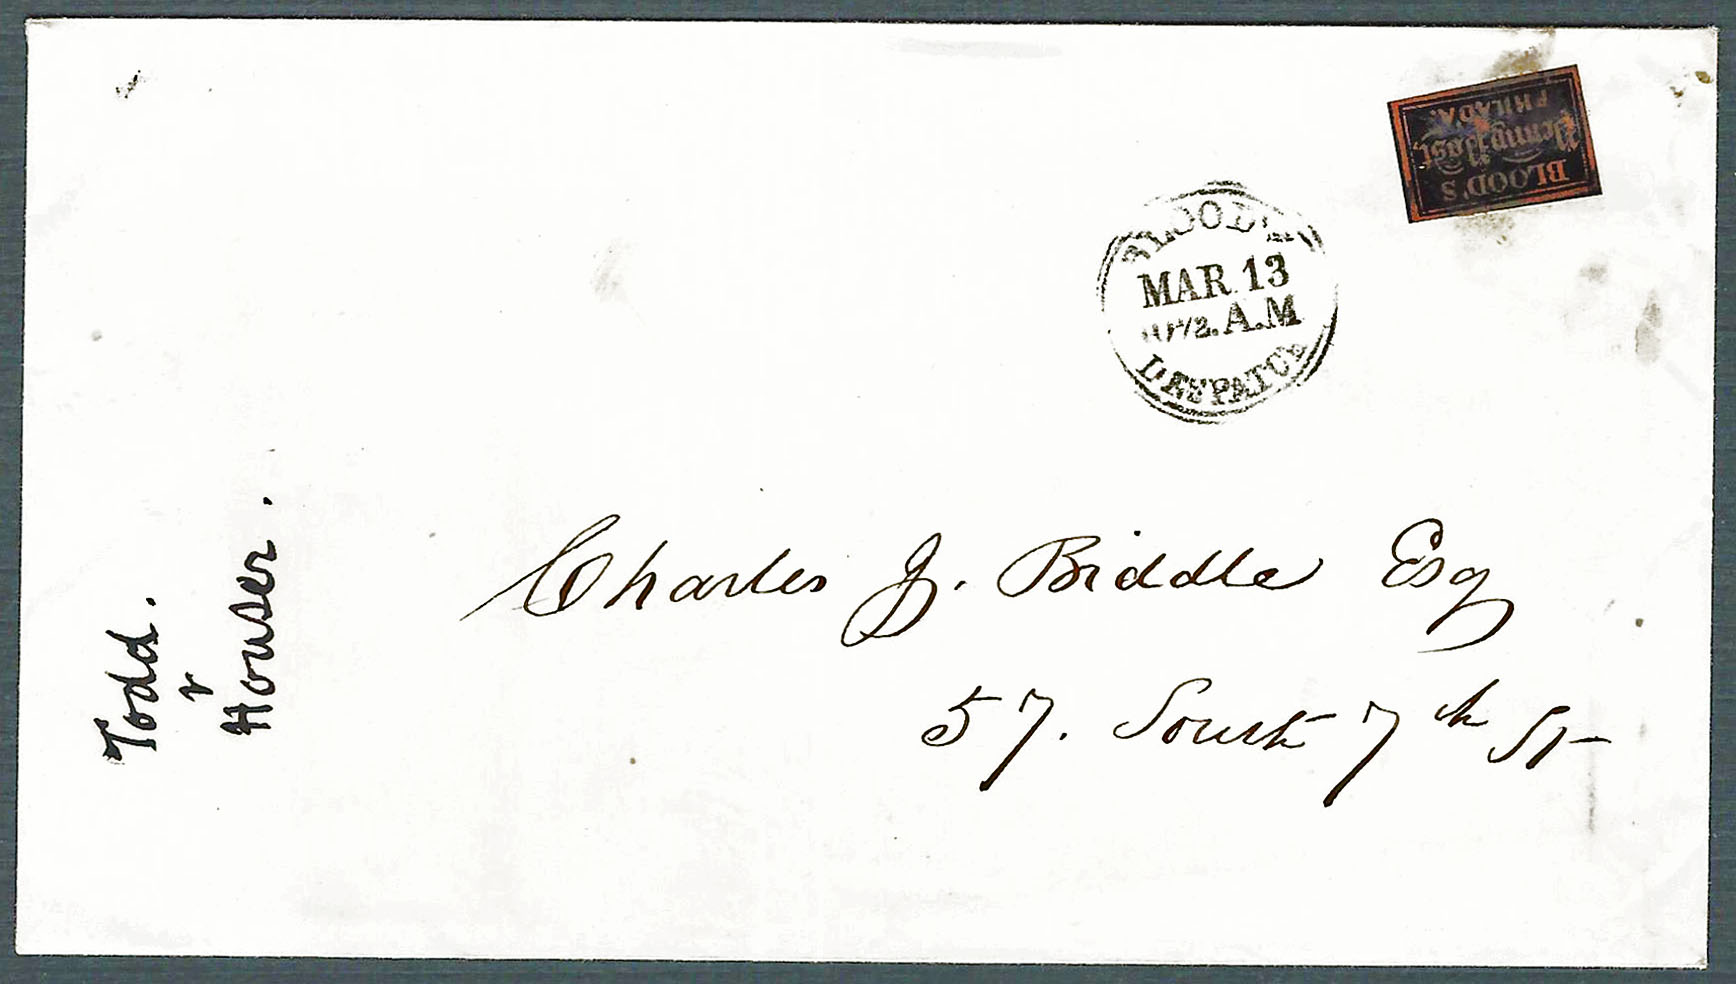 BLOOD'S
Penny Post,
PHILADA.
BLOOD'S
MAR 13
10½. A.M
DESPATCH
Charles J. Biddle Esq
57. South 7th St
Todd.
v
Houser.